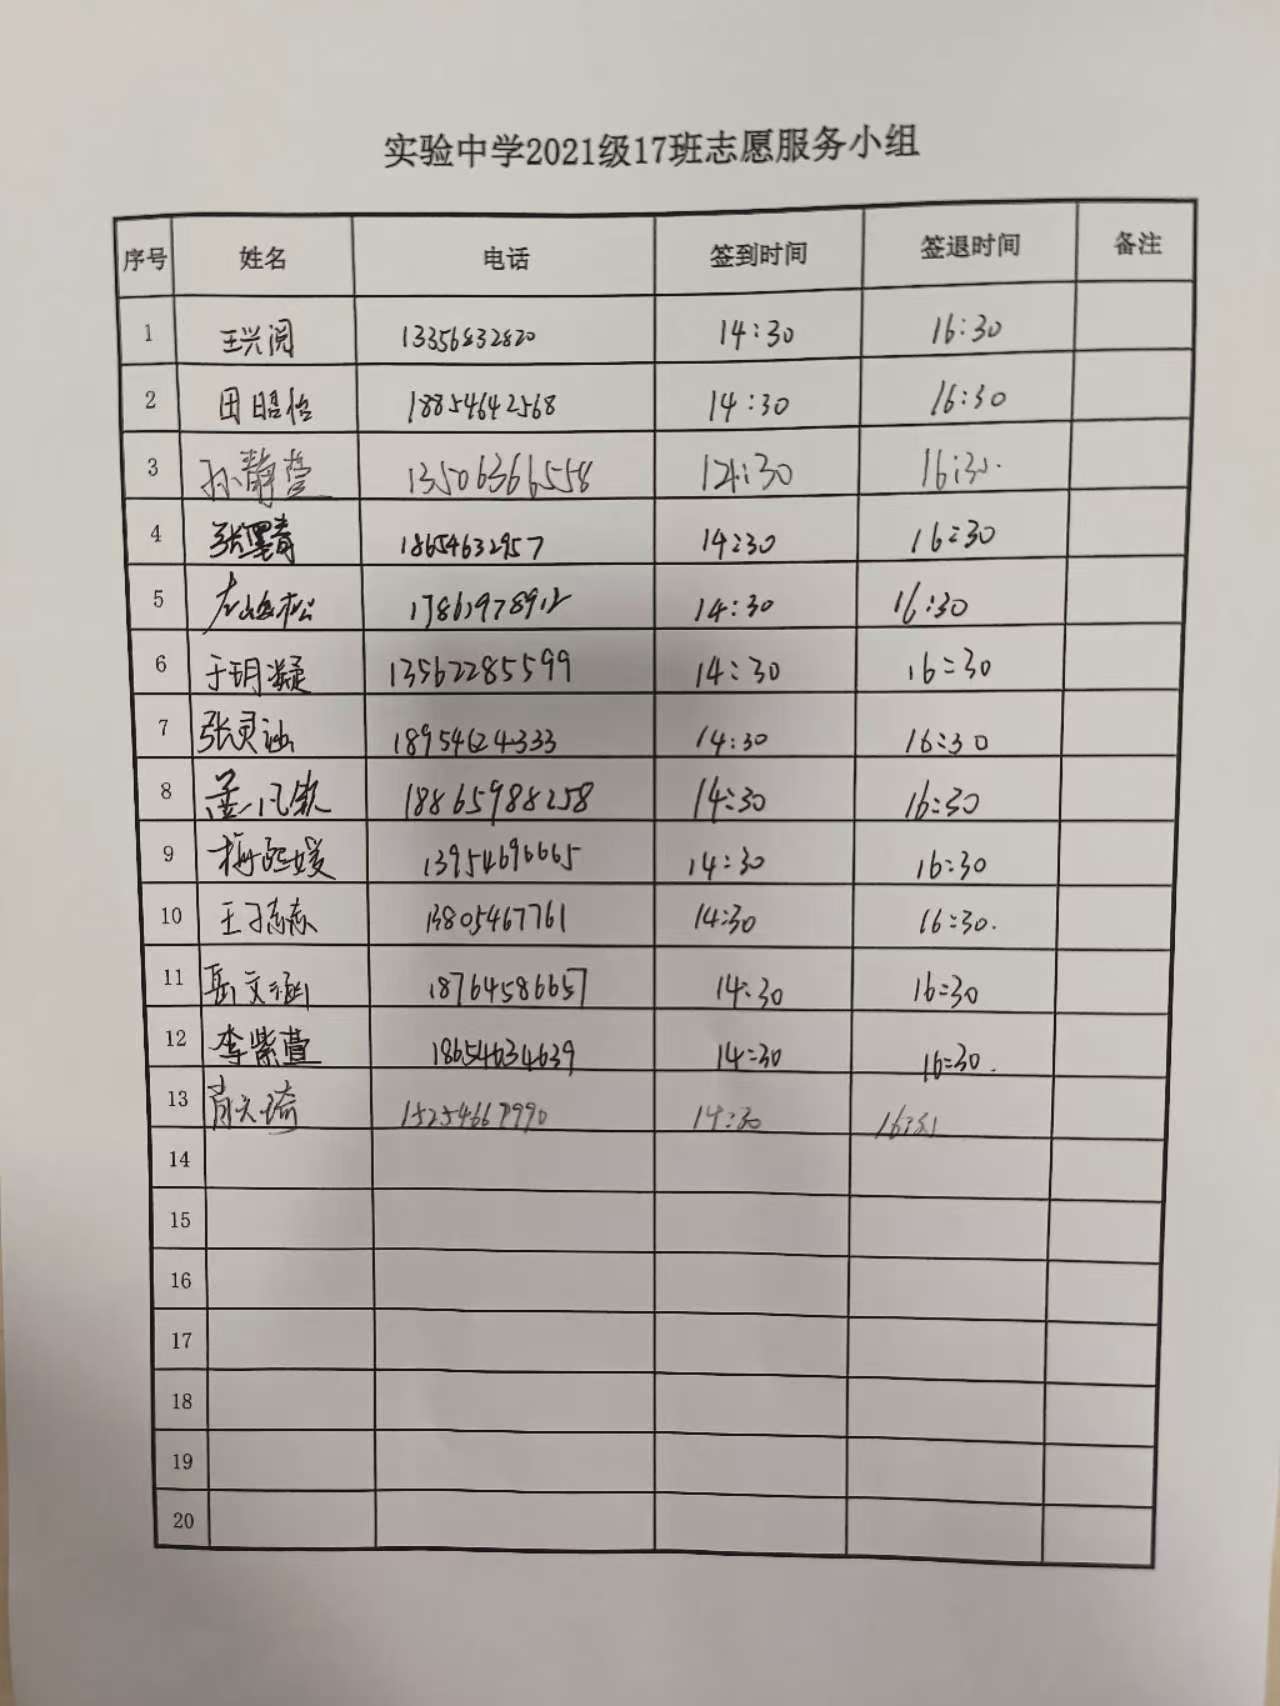 实验中学2021级17班志愿服务小组
序号 姓名 电话 签到时间 签退时间 备注
1 王兴阅 13356832820 14:30 16:30
2 田昭怡 18854642568 14:30 16:30
3 孙静萱 13506366558 14:30 16:30.
4 张墨青 18654632957 14:30 16:30
5 松 14:30 16:30
6 于玥凝 13562285599 14:30 16:30
7 张灵涵 18954624333 14:30 16:30
8 盖 18865988258 14:30 16:30
9 梅熙媛 13954696665 14:30 16:30
10 王 13805467761 14:30 16:30.
11 岳文涵 18764586657 14:30 16:30
12 李紫萱 18654634639 14:30 16:30.
13 肖天琦 14:30
14
15
16
17
18
19
20